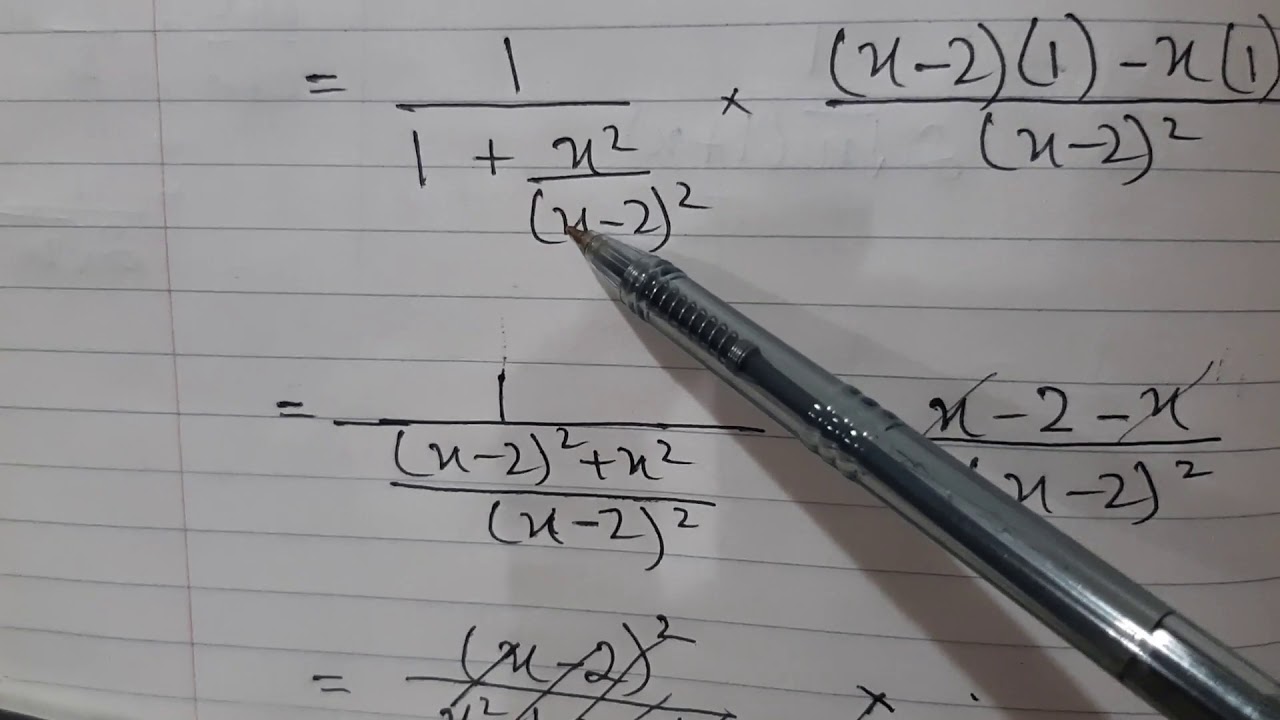 = 1 / (1 + x² / (x-2)²) × ((x-2)(1) - x(1)) / (x-2)²
= 1 / (((x-2)² + x²) / (x-2)²) (x - 2 - x) / (x-2)²
= (x-2)² ×